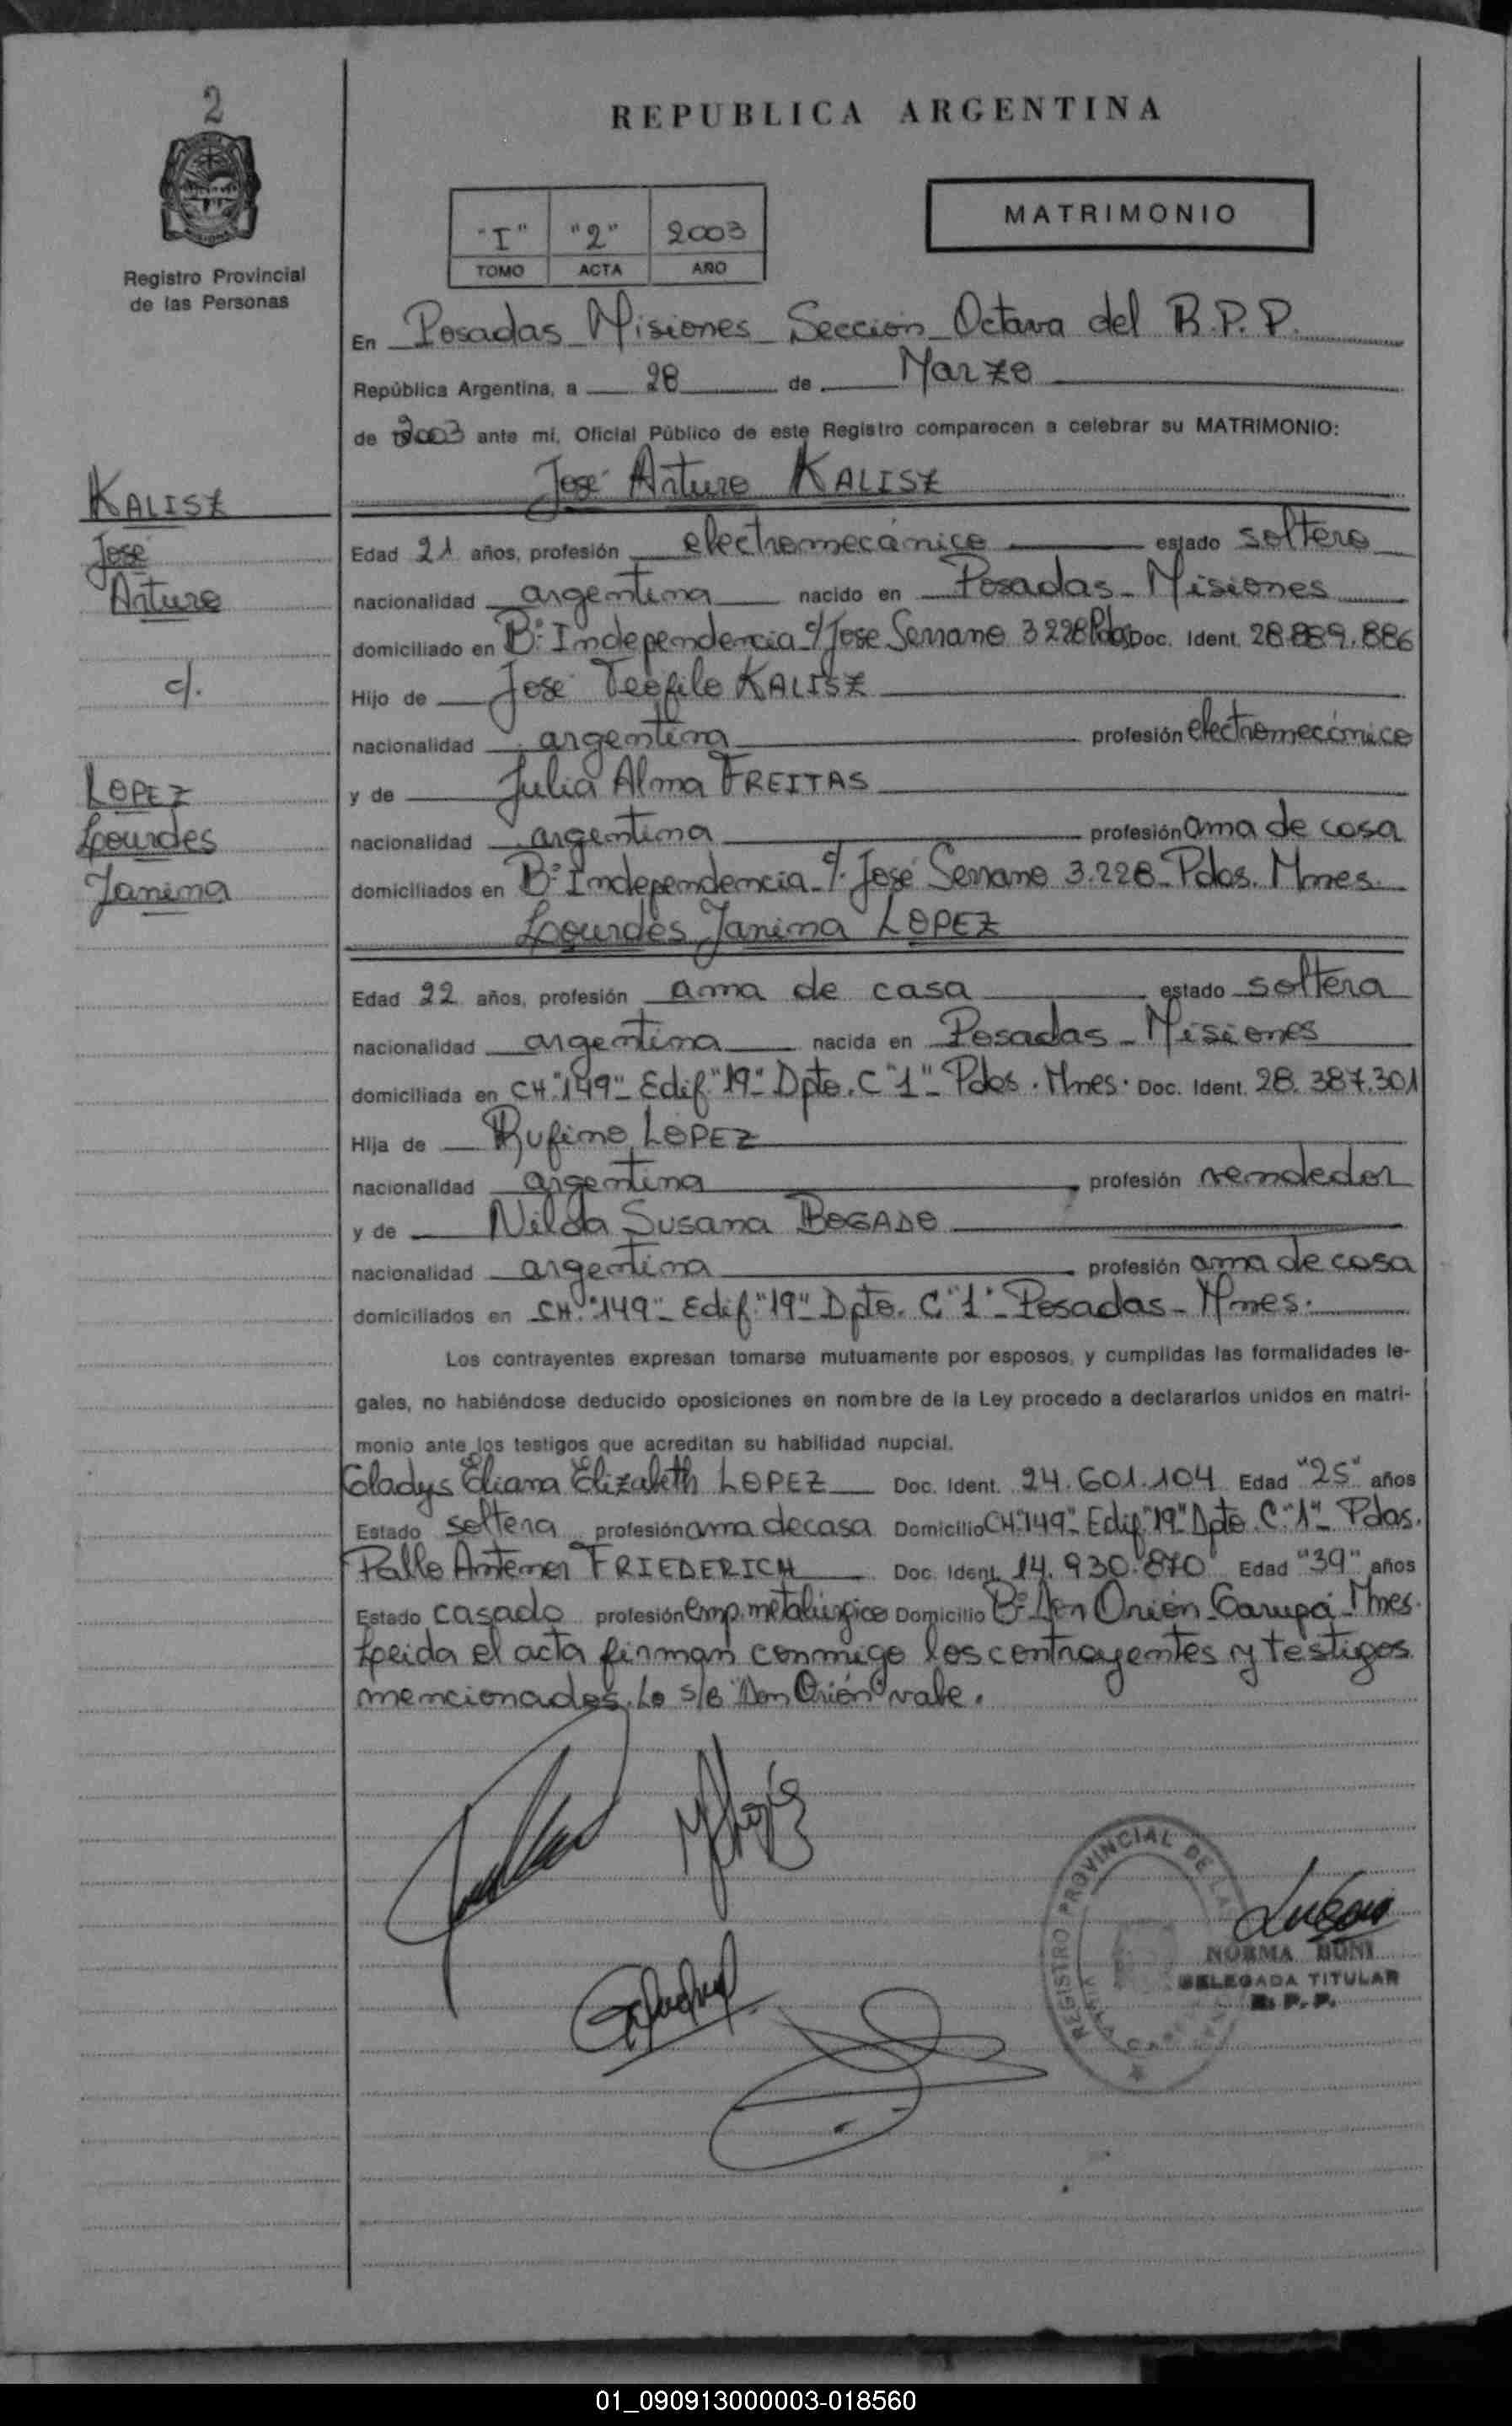 2
REPUBLICA ARGENTINA
MATRIMONIO
"I" "2" 2003
TOMO ACTA AÑO
Registro Provincial
de las Personas
En Posadas Misiones Sección Octava del R.P.P.
República Argentina, a 28 de Marzo
de 2003 ante mí, Oficial Público de este Registro comparecen a celebrar su MATRIMONIO:
José Arturo KALISZ
KALISZ
José
Arturo
c/.
LOPEZ
Lourdes
Janina
Edad 21 años, profesión electromecánico estado soltero
nacionalidad argentina nacido en Posadas - Misiones
domiciliado en B° Independencia c/ Jose Serrano 3228 Pdas Doc. Ident. 28.889.886
Hijo de José Teófilo KALISZ
nacionalidad argentina profesión electromecánico
y de Julia Alma FREITAS
nacionalidad argentina profesión ama de casa
domiciliados en B° Independencia c/. José Serrano 3.228 - Pdas. Mnes.
Lourdes Janina LOPEZ
Edad 22 años, profesión ama de casa estado soltera
nacionalidad argentina nacida en Posadas - Misiones
domiciliada en CH."149" - Edif."19" - Dpto. C "1" - Pdas. Mnes. Doc. Ident. 28.387.301
Hija de Rufino LOPEZ
nacionalidad argentina profesión vendedor
y de Nilda Susana BOGADO
nacionalidad argentina profesión ama de casa
domiciliados en CH."149" - Edif."19" - Dpto. C "1" - Posadas - Mnes.
Los contrayentes expresan tomarse mutuamente por esposos, y cumplidas las formalidades le-
gales, no habiéndose deducido oposiciones en nombre de la Ley procedo a declararlos unidos en matri-
monio ante los testigos que acreditan su habilidad nupcial.
Gladys Eliana Elizabeth LOPEZ Doc. Ident. 24.601.104 Edad "25" años
Estado soltera profesión ama de casa Domicilio CH."149" - Edif."19" Dpto. C "1" - Pdas.
Pablo Antenor FRIEDERICH Doc. Ident. 14.930.870 Edad "39" años
Estado casado profesión emp. metalúrgico Domicilio B° Don Orión - Garupá - Mnes.
Leida el acta firman conmigo los contrayentes y testigos
mencionados. Lo s/B "Don Orión" vale.
REGISTRO PROVINCIAL DE LAS
NORMA BONI
DELEGADA TITULAR
R. P. P.
01_090913000003-018560